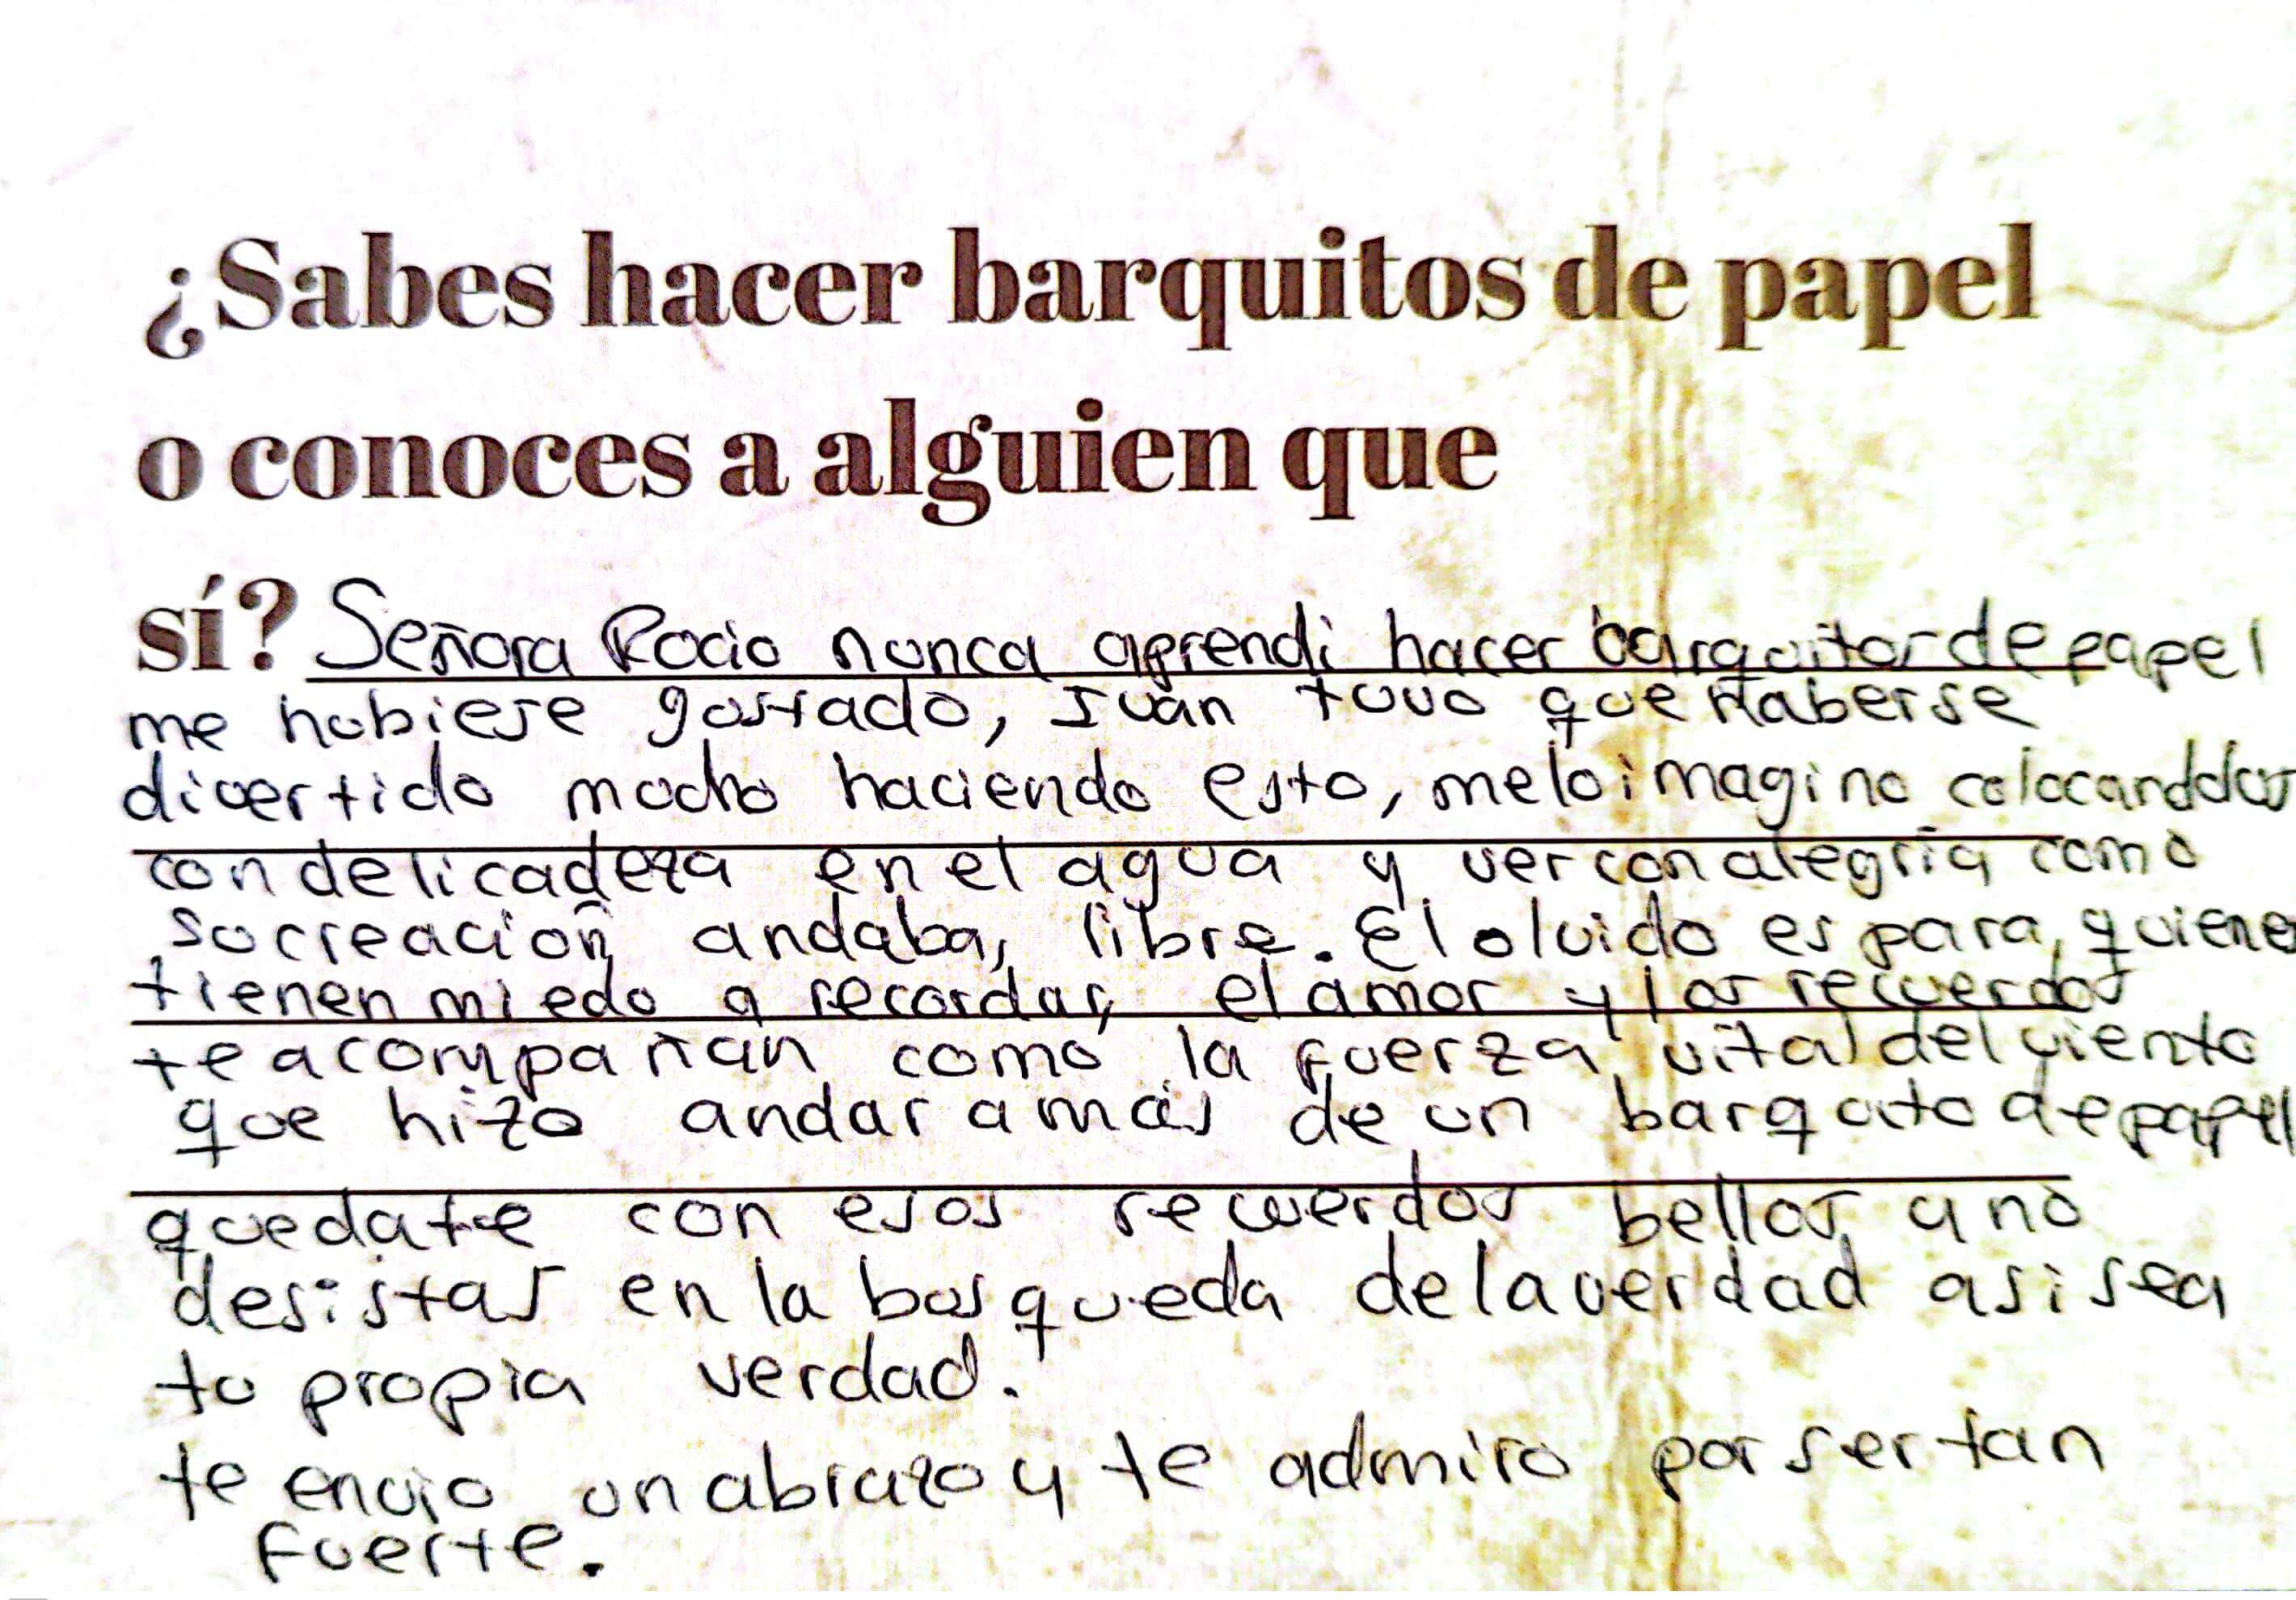 ¿Sabes hacer barquitos de papel
o conoces a alguien que
sí? Señora Rocio nunca aprendi hacer barquitos de papel
me hubiese gostado, Iván tuvo que haberse
divertido mucho haciendo esto, me lo imagino colocandolos
con delicadeza en el agua y ver con alegría como
su creación andaba, libre. El olvido es para, quienes
tienen miedo a recordar, el amor y los recuerdos
te acompañan como la fuerza vital del viento
que hizo andar a más de un barquito de papel
quedate con esos recuerdos bellos y no
desistas en la busqueda de la verdad asi sea
tu propia verdad.
te envio un abrazo y te admiro por ser tan
fuerte.